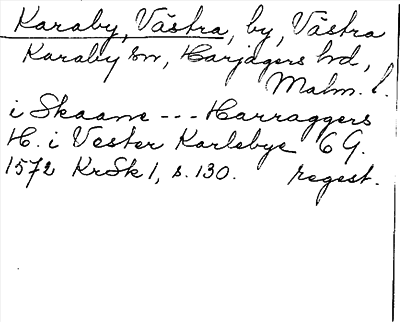 Karaby, Västra, by, Västra
Karaby sn, Harjagers hd,
Malm. l.
i Skaane --- Harraggers
H. i Vester Karlebye 6 G.
1572 KrSk 1, s. 130. regest.